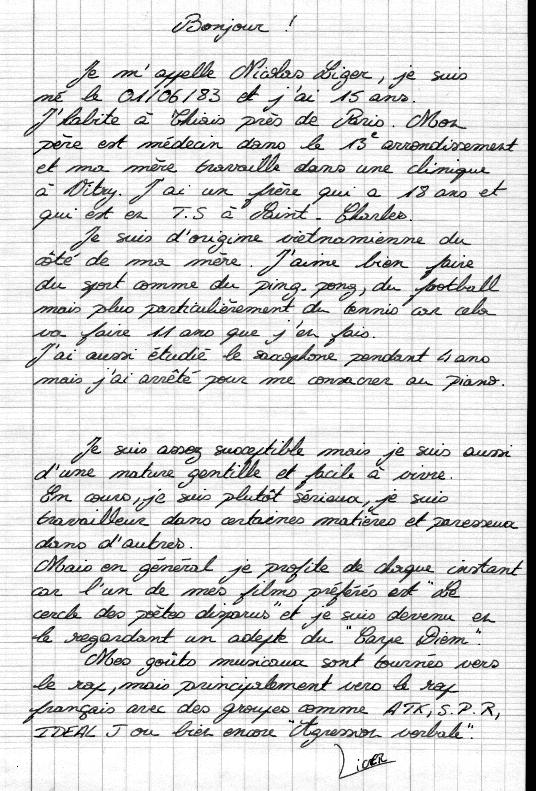 Bonjour !
Je m'appelle Nicolas Liger, je suis
né le 01/06/83 et j'ai 15 ans.
J'habite à Thiais près de Paris. Mon
père est médecin dans le 13e arrondissement
et ma mère travaille dans une clinique
à Vitry. J'ai un frère qui a 18 ans et
qui est en T.S à Saint-Charles.
Je suis d'origine vietnamienne du
côté de ma mère. J'aime bien faire
du sport comme du ping-pong, du football
mais plus particulièrement du tennis car cela
va faire 11 ans que j'en fais.
J'ai aussi étudié le saxophone pendant 4 ans
mais j'ai arrêté pour me consacrer au piano.
Je suis assez susceptible mais je suis aussi
d'une nature gentille et facile à vivre.
En cours, je suis plutôt sérieux, je suis
travailleur dans certaines matières et paresseux
dans d'autres.
Mais en général je profite de chaque instant
car l'un de mes films préférés est "Le
cercle des poètes disparus" et je suis devenu en
le regardant un adepte du "Carpe Diem".
Mes goûts musicaux sont tournés vers
le rap, mais principalement vers le rap
français avec des groupes comme ATK, S.P.R,
IDEAL J ou bien encore "Agression verbale".
LIGER